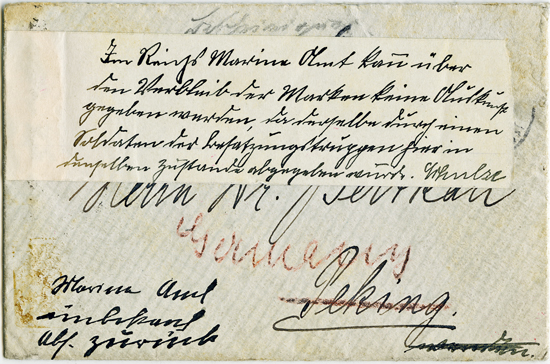 Im Reichs Marine Amt kann über
den Verbleib der Marken keine Auskunft
gegeben werden, da derselbe durch einen
Soldaten der Besatzungstruppen hier in
demselben Zustande abgegeben wurde. Schulze
Herrn Dr.
Germany
Peking.
Marine Amt
unbekannt
Abs. zurück